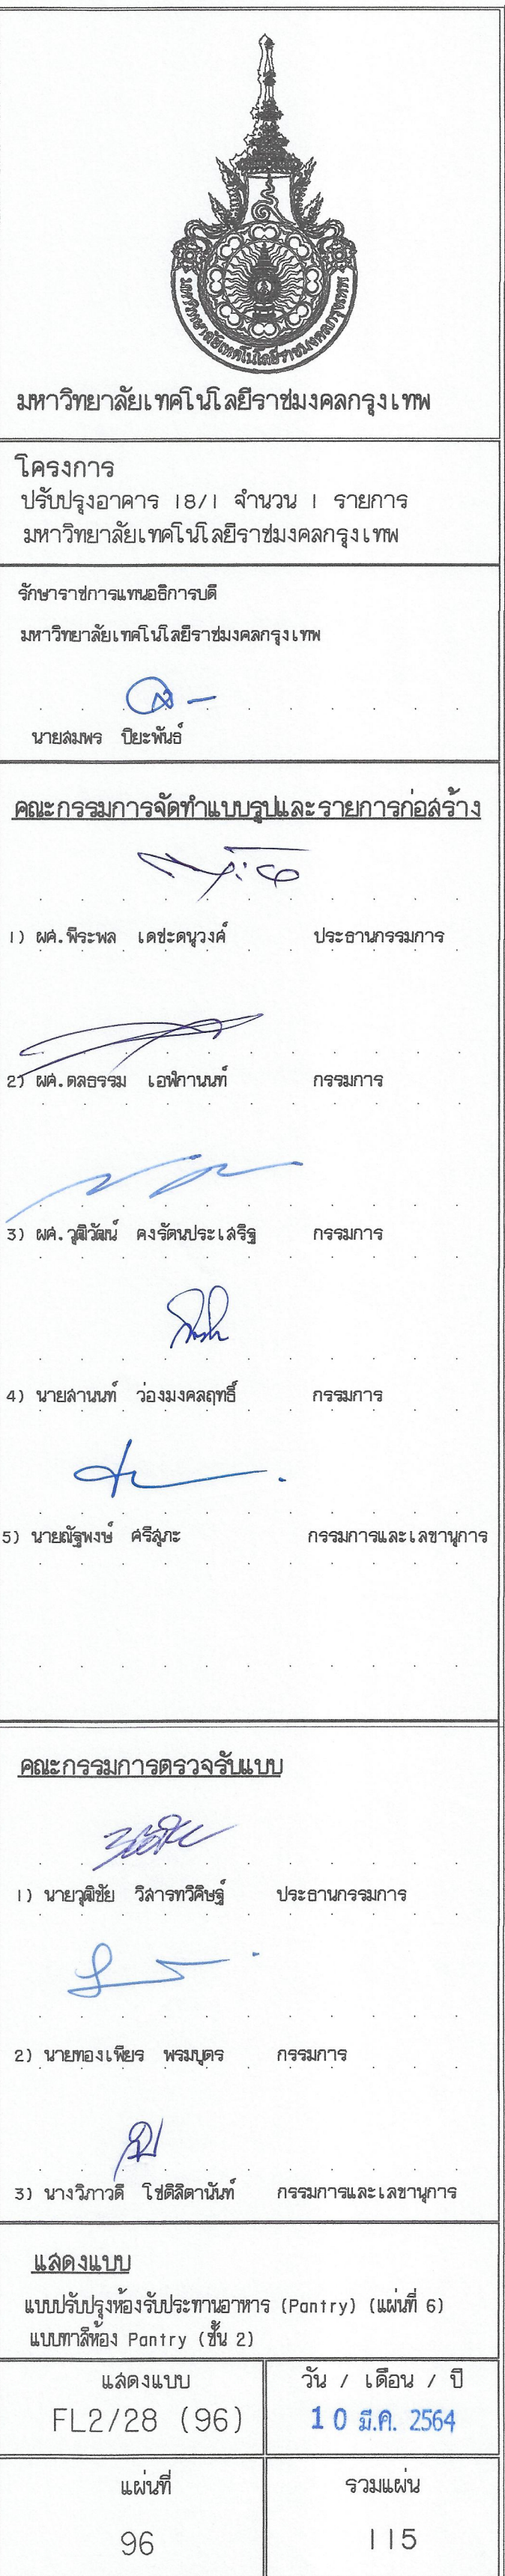 มหาวิทยาลัยเทคโนโลยีราชมงคลกรุงเทพ
มหาวิทยาลัยเทคโนโลยีราชมงคลกรุงเทพ
โครงการ
ปรับปรุงอาคาร 18/1 จำนวน 1 รายการ
มหาวิทยาลัยเทคโนโลยีราชมงคลกรุงเทพ
รักษาราชการแทนอธิการบดี
มหาวิทยาลัยเทคโนโลยีราชมงคลกรุงเทพ
นายสมพร ปิยะพันธ์
คณะกรรมการจัดทำแบบรูปและรายการก่อสร้าง
1) ผศ.พีระพล เดชะดนุวงค์ ประธานกรรมการ
2) ผศ.ดลธรรม เอฬกานนท์ กรรมการ
3) ผศ.วุฒิวัฒน์ คงรัตนประเสริฐ กรรมการ
4) นายสานนท์ ว่องมงคลฤทธิ์ กรรมการ
5) นายณัฐพงษ์ ศรีสุภะ กรรมการและเลขานุการ
คณะกรรมการตรวจรับแบบ
1) นายวุฒิชัย วิสารทวิศิษฐ์ ประธานกรรมการ
2) นายทองเพียร พรมบุตร กรรมการ
3) นางวิภาวดี โชติลิตานันท์ กรรมการและเลขานุการ
แสดงแบบ
แบบปรับปรุงห้องรับประทานอาหาร (Pantry) (แผ่นที่ 6)
แบบทาสีห้อง Pantry (ชั้น 2)
แสดงแบบ วัน / เดือน / ปี
FL2/28 (96) 10 มี.ค. 2564
แผ่นที่ รวมแผ่น
96 115